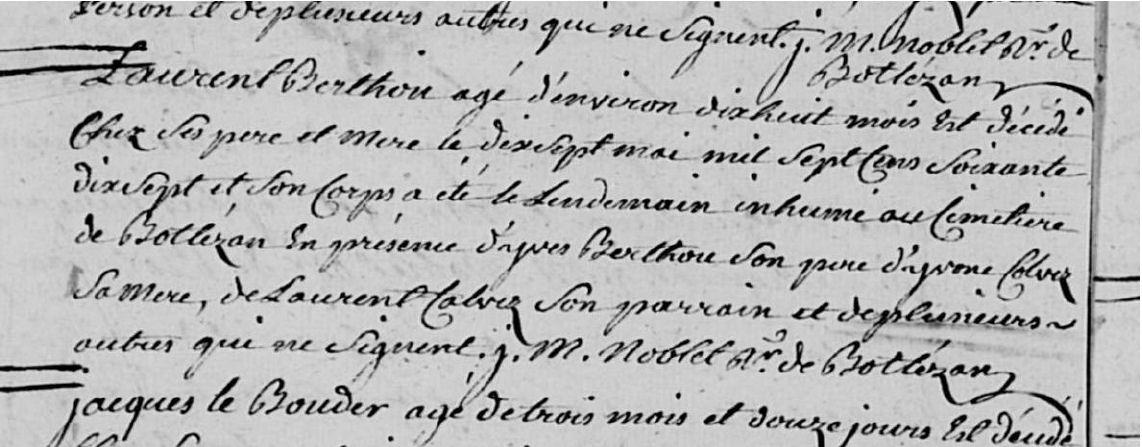 person et deplusieurs autres qui ne Signent. j. M. Noblet Rr. de
Botlézan
Laurent Berthou agé d'environ dixhuit mois Est décédé
Chez Ses pere et Mere le dixsept mai mil Sept Cens Soixante
dixSept et Son Corps a eté le Lendemain inhumé au Cimetiere
de Botlézan En présence d'yves Berthou Son pere d'yvone Calvez
Sa Mere, de Laurent Calvez Son parrain et deplusieurs
autres qui ne Signent. j. M. Noblet Rr. de Botlézan
jacques le Bouder agé detrois mois et douze jours Est décédé